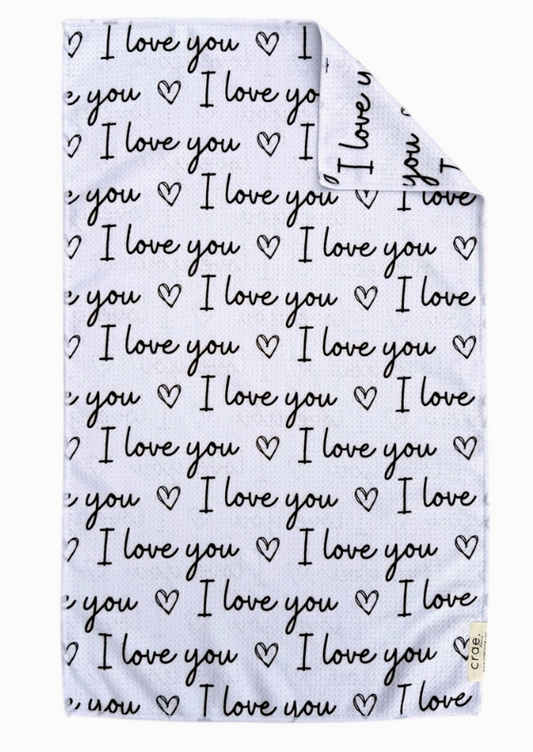 I love you ♡ I
e you ♡ I love yo
I love you ♡ I
e you ♡ I love you ♡ I love
I love you ♡ I love you ♡
e you ♡ I love you ♡ I love
I love you ♡ I love you ♡
e you ♡ I love you ♡ I love
I love you ♡ I love you ♡
e you ♡ I love you ♡ I love
I love you ♡ I love you ♡
e you ♡ I love you ♡ I love
I love you ♡ I love you ♡
e you ♡ I love you ♡ I love
I love y
you
I
crae.